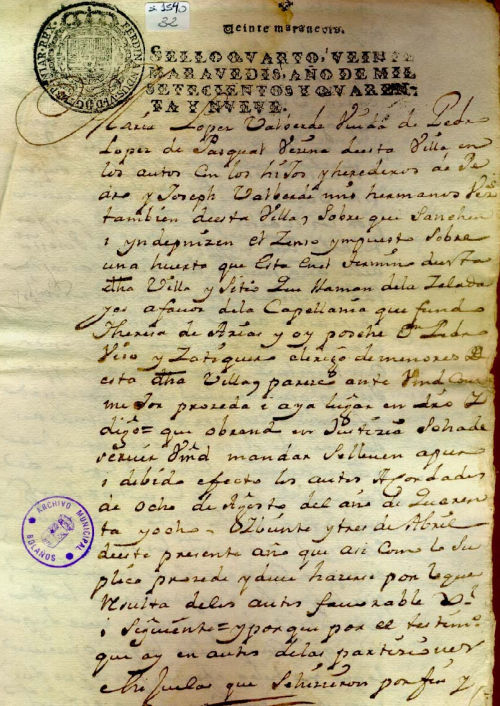 s. 1540
32
Veinte maravedis.
SELLO QVARTO, VEINTE
MARAVEDIS, AÑO DE MIL
SETECIENTOS Y QVAREN-
TA Y NVEVE.
Maria Lopez Valberde Viuda de Pedro
Lopez de Pasqual Vezina desta Villa en
los autos con los hijos y herederos de Pe
dro y Joseph Valberde mis hermanos Vezs
tambien desta Villa, sobre que Sanehen
i yndepnizen el Zenso ympuesto sobre
una huerta que esta en el termino desta
dha Villa y Sitio que llaman de la Zelada
a favor de la Capellania que fundo
Theresa de Arias y oy poshe Dn Pedro
Viso y clerigo de menores D
esta dha Villa, parezco ante Vmd Como
mejor prozeda i aya lugar en dro Y
digo= que obrando en Justizia Se ha de
servir Vmd mandar Se lleven a pura
i debido efecto los autos Acordados
de Ocho de Agosto del año de Quaren
ta yocho = Veinte y tres de Abril
deeste presente año que asi como lo Su
plico prozede y deve hazerse por lo que
Resulta de los autos favorable
i Siguiente= y porque por el testim
que ay en autos de las partiziones
e hijuelas que Se hizieron por fin y
ARCHIVO MUNICIPAL
BOLAÑOS